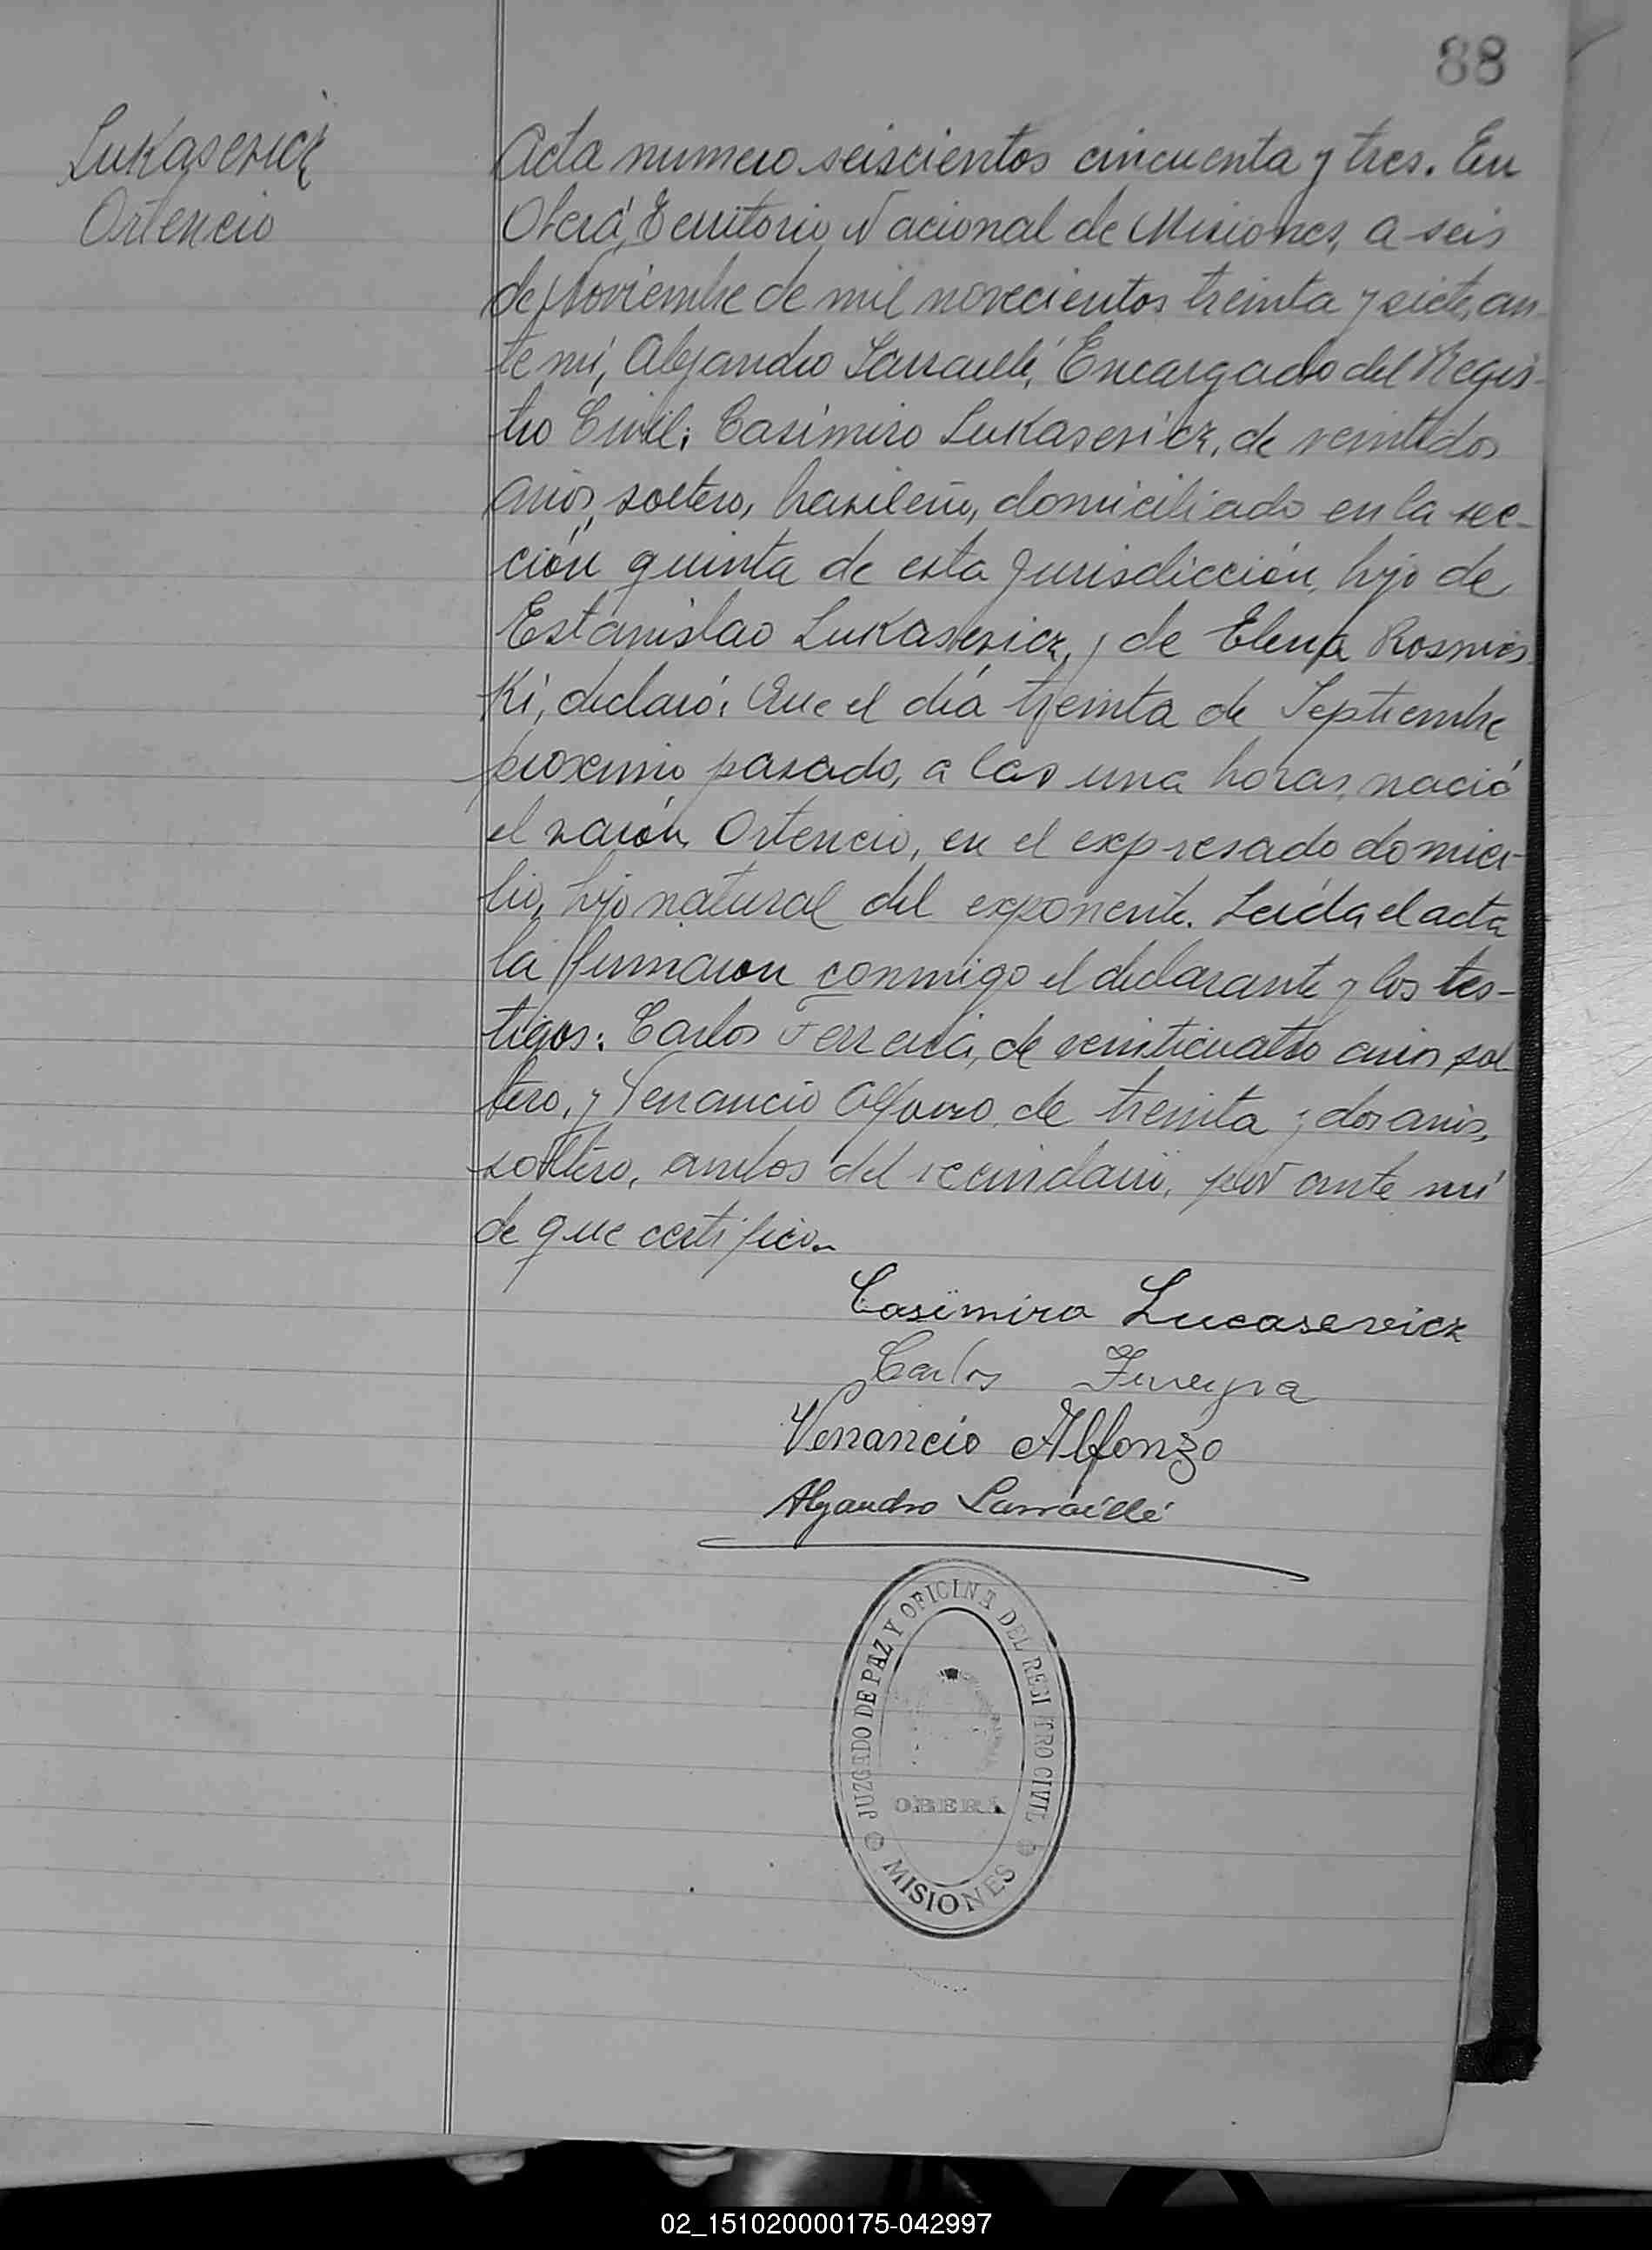 88
Lukasevicz
Ortencio
Acta numero seiscientos cincuenta y tres. En
Oberá, Territorio Nacional de Misiones, a seis
de Noviembre de mil novecientos treinta y siete, an-
te mí, Alejandro Larraillé, Encargado del Regis-
tro Civil; Casimiro Lukasevicz, de veintidos
años, soltero, brasileño, domiciliado en la sec-
ción quinta de esta jurisdicción, hijo de
Estanislao Lukasevicz, y de Elena Rosnies
ki, declaró: Que el día treinta de Septiembre
proximo pasado, a las una horas, nació
el varón Ortencio, en el expresado domici-
lio, hijo natural del exponente. Leída el acta
la firmaron conmigo el declarante y los tes-
tigos: Carlos de veinticuatro años, sol-
tero, y Venancio Alfonzo, de treinta y dos años,
soltero, ambos del vecindario, por ante mí
de que certifico.
Casimiro Lucasevicz
Carlos Ferreyra
Venancio Alfonzo
Alejandro Larraillé
JUZGADO DE PAZ Y OFICINA DEL REGISTRO CIVIL
OBERÁ
MISIONES
02_151020000175-042997